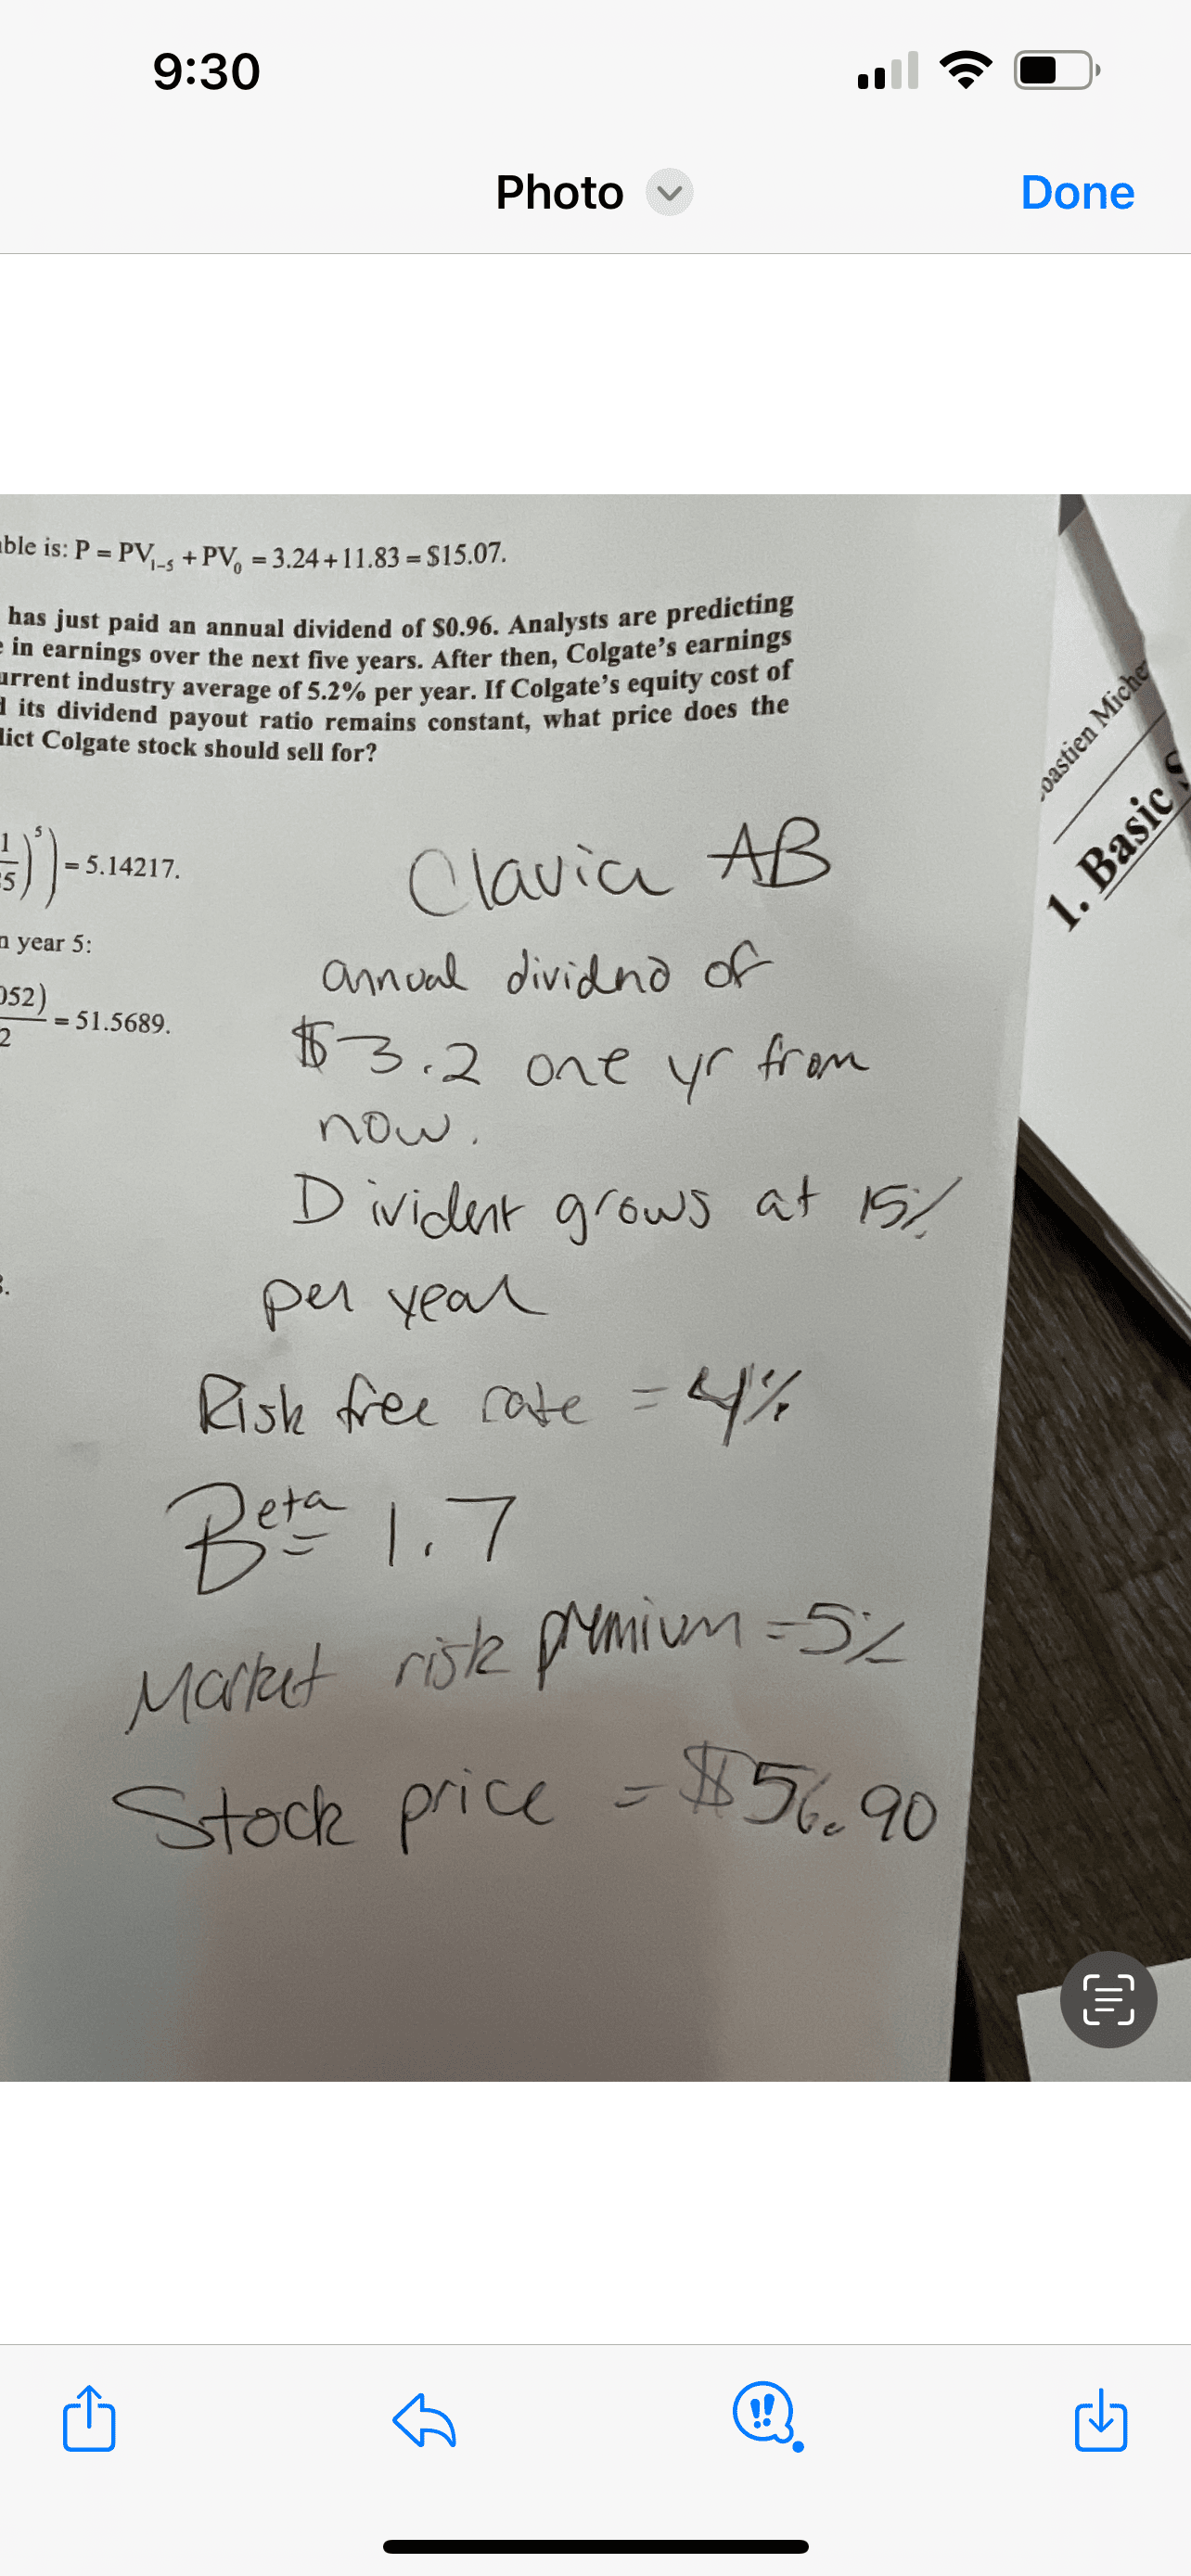 9:30
Photo
Done
able is: P = PV₁₋₅ + PV₀ = 3.24 + 11.83 = $15.07.
has just paid an annual dividend of $0.96. Analysts are predicting
e in earnings over the next five years. After then, Colgate's earnings
urrent industry average of 5.2% per year. If Colgate's equity cost of
d its dividend payout ratio remains constant, what price does the
dict Colgate stock should sell for?
= 5.14217.
n year 5:
052)
2
= 51.5689.
bastien Miche
1. Basic S
Clavia AB
annual dividnd of
$3.2 one yr from
now.
Divident grows at 15%
per year
Risk free rate = 4%
Beta = 1.7
Market risk premium = 5%
Stock price = $56.90